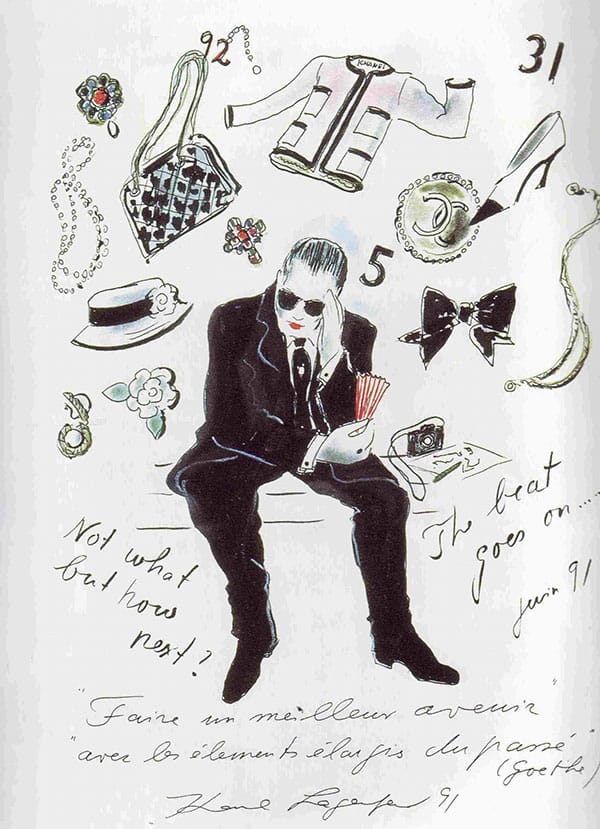 92
31
CHANEL
5
The beat
goes on....
juin 91
Not what
but how
next?
"Faire un meilleur avenir"
"avec les élements élargis du passé"
(Goethe)
Karl Lagerfeld 91